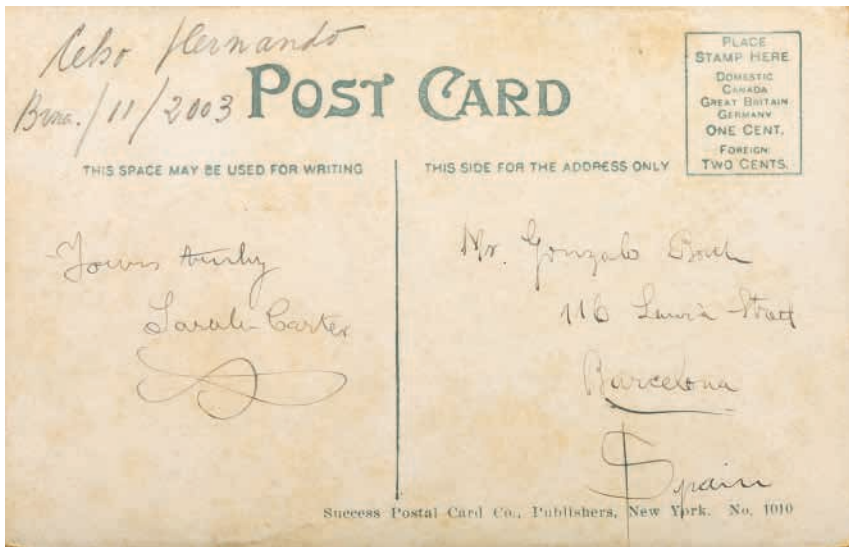 Celso Hernando
Bna./11/2003
POST CARD
PLACE
STAMP HERE
DOMESTIC
CANADA
GREAT BRITAIN
GERMANY
ONE CENT,
FOREIGN:
TWO CENTS.
THIS SPACE MAY BE USED FOR WRITING
THIS SIDE FOR THE ADDRESS ONLY
Yours truly
Sarah Carter
Mr. Gonzalo
116 Lauria
Barcelona
Spain
Success Postal Card Co., Publishers, New York. No. 1010